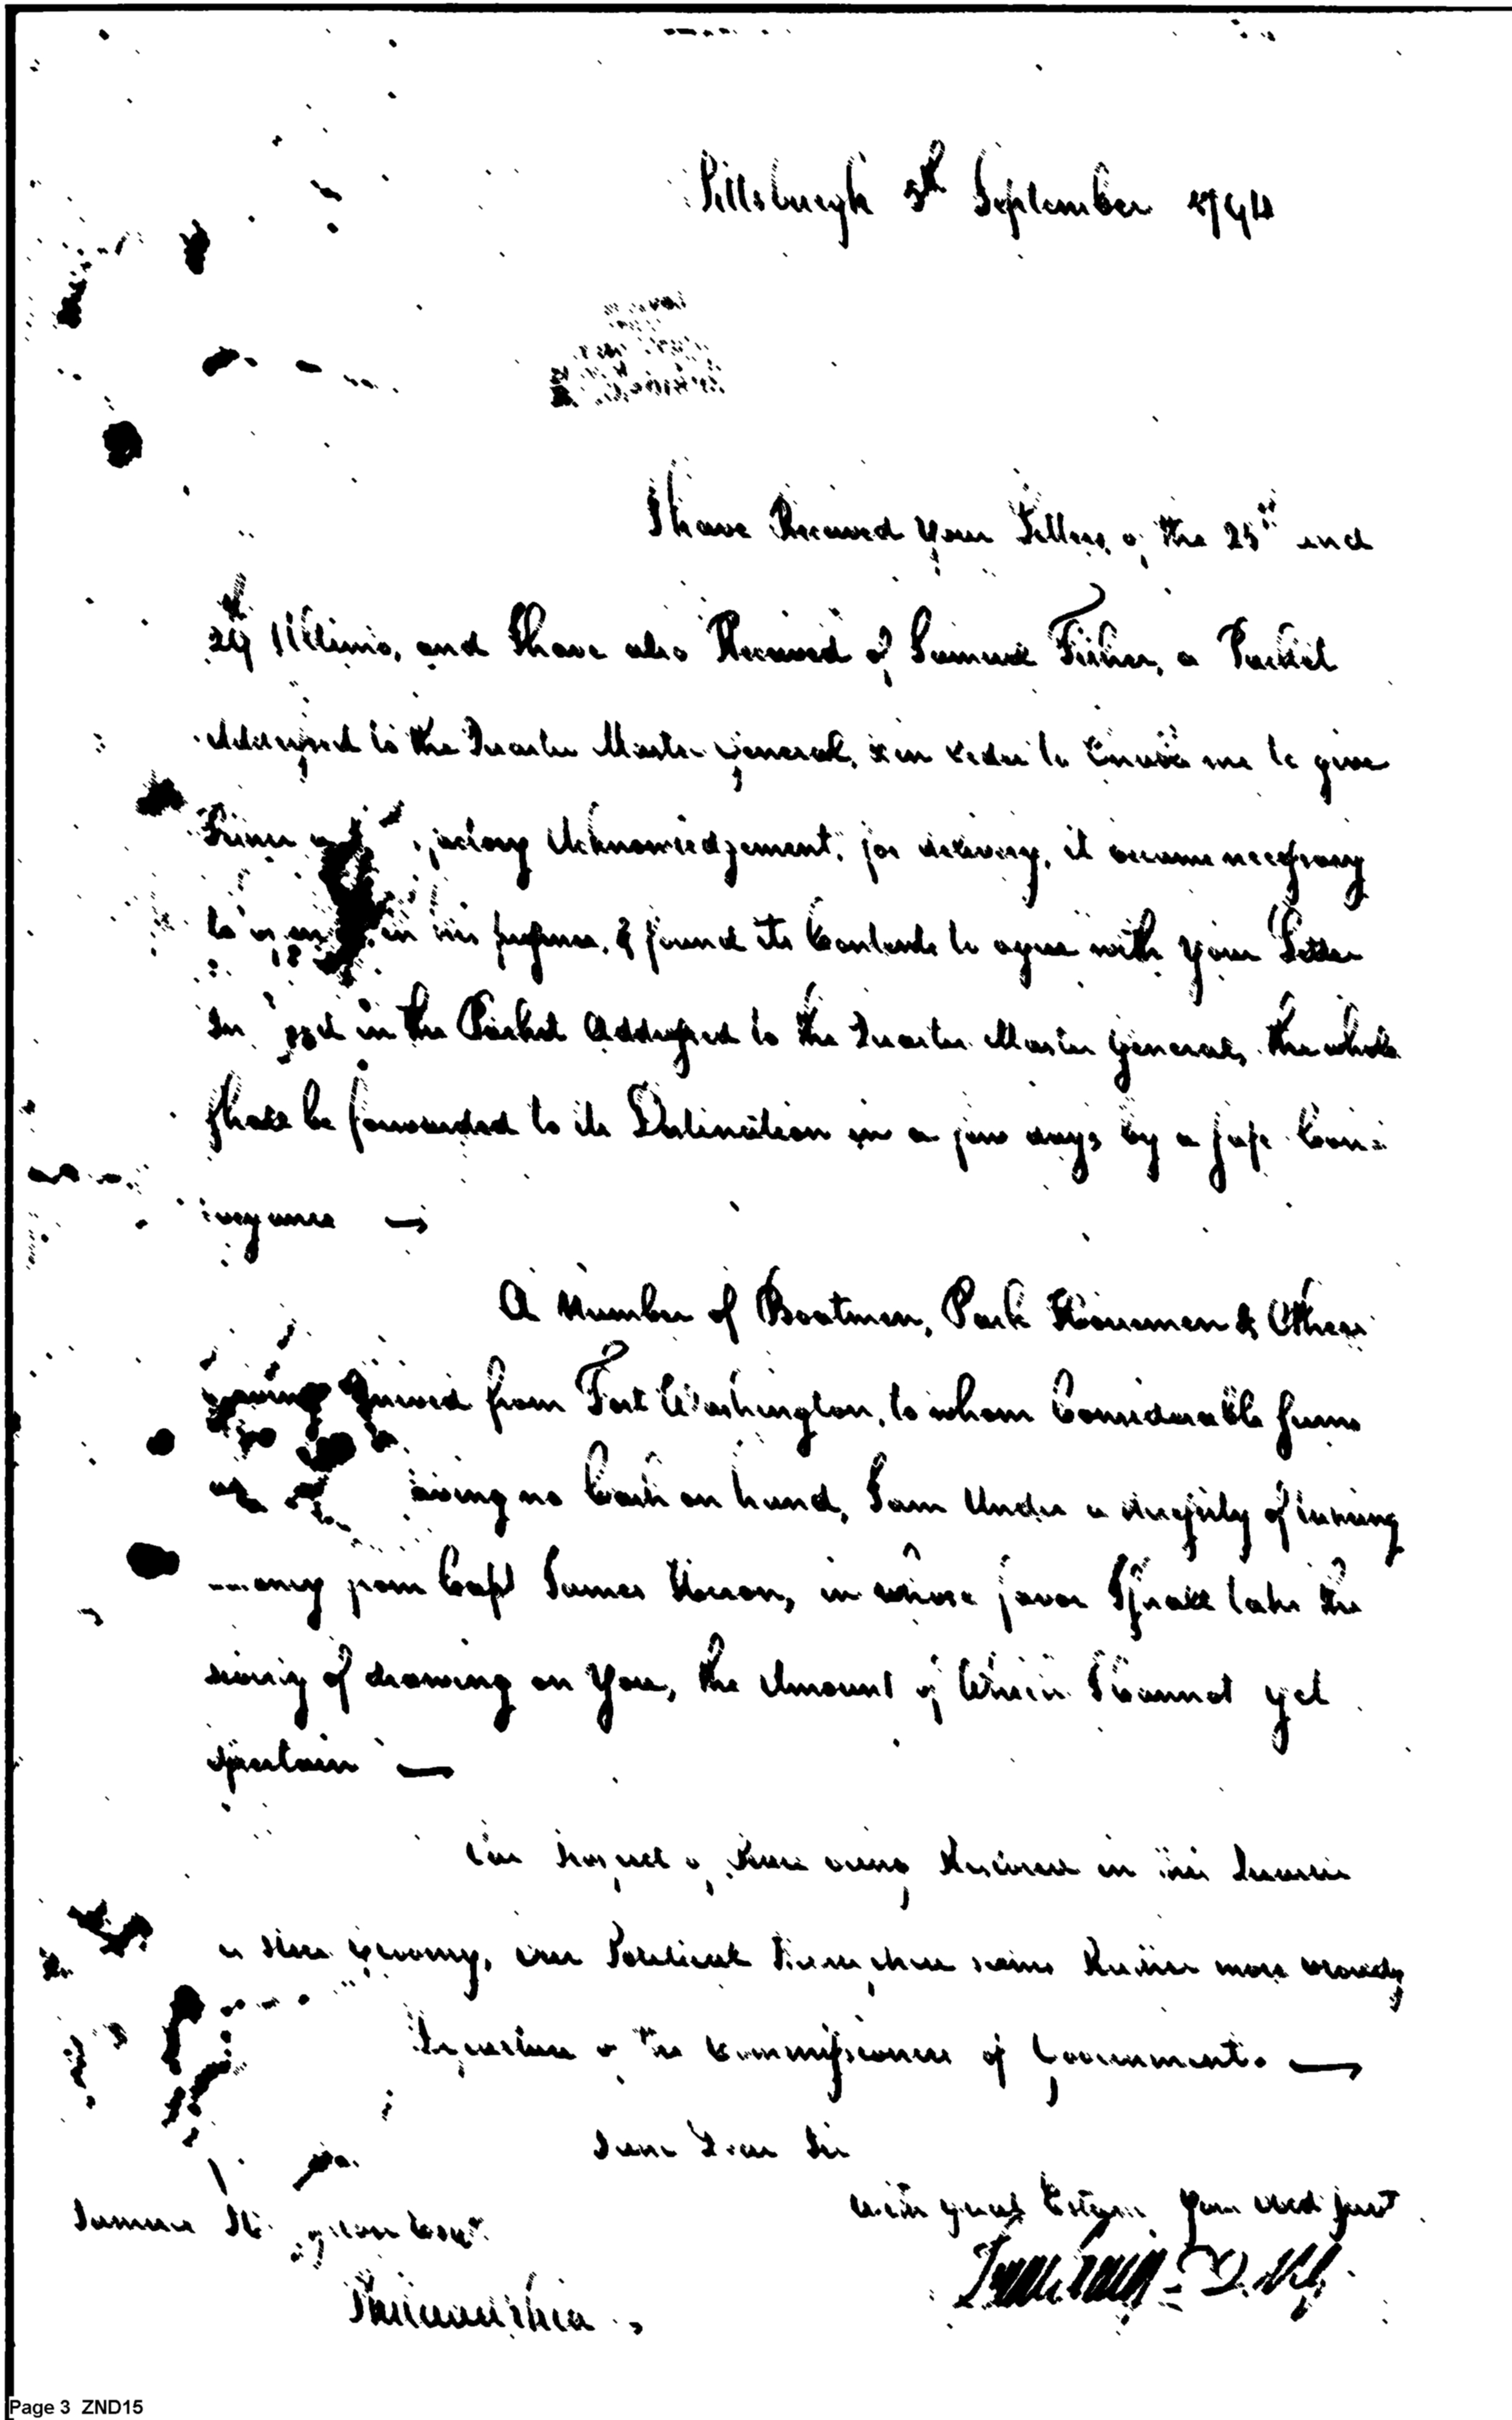 Pittsburgh 5th September 1794
I have Received your Letters of the 25th and
29th Ultimo, and I have also Received of Samuel Fisher, a Packet
Addressed to the Quarter Master General, & in order to Enable me to give
factory Acknowledgement, for delivery, it became necessary
to in his presence, & found its Contents to agree with your Letter
in the Packet Addressed to the Quarter Master General, the whole
shall be forwarded to its Destination in a few days by a safe Con=
veyance —
A Number of Boatmen, Pack Horsemen & Others
having arrived from Fort Washington, to whom Considerable sums
having no Cash on hand, I am Under a necessity of taking
money from Capt James Heron, in whose favor I shall take the
liberty of drawing on You, the Amount of Which I cannot yet
ascertain —
The prospect of these being Restored in this
is still gloomy, our Political more cloudy
Departure of the Commissioners of Government. —
I am Dear Sir
with great Esteem Your Obed Servt
Isaac Craig D.Q.M.
Samuel Hodgdon Esqr.
Philadelphia
Page 3 ZND15